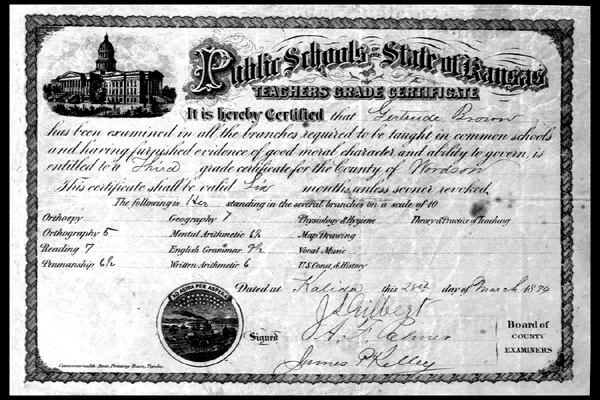 Public Schools of the State of Kansas
TEACHERS GRADE CERTIFICATE
It is hereby Certified that Gertrude Brown
has been examined in all the branches required to be taught in common schools
and having furnished evidence of good moral character and ability to govern, is
entitled to a Third grade certificate for the County of Woodson
This certificate shall be valid Six months, unless sooner revoked.
The following is Her standing in the several branches on a scale of 10
Orthoepy Geography 7 Physiology & Hygiene Theory & Practice of Teaching
Orthography 5 Mental Arithmetic 6½ Map Drawing
Reading 7 English Grammar 7½ Vocal Music
Penmanship 6½ Written Arithmetic 6 U.S. Const. & History
Dated at Kalida this 28th day of March 1874
AD ASTRA PER ASPERA
Signed
J. S. Gilbert
A. F. Palmer
James P. Kelley
Board of
COUNTY
EXAMINERS
Commonwealth State Printing House, Topeka